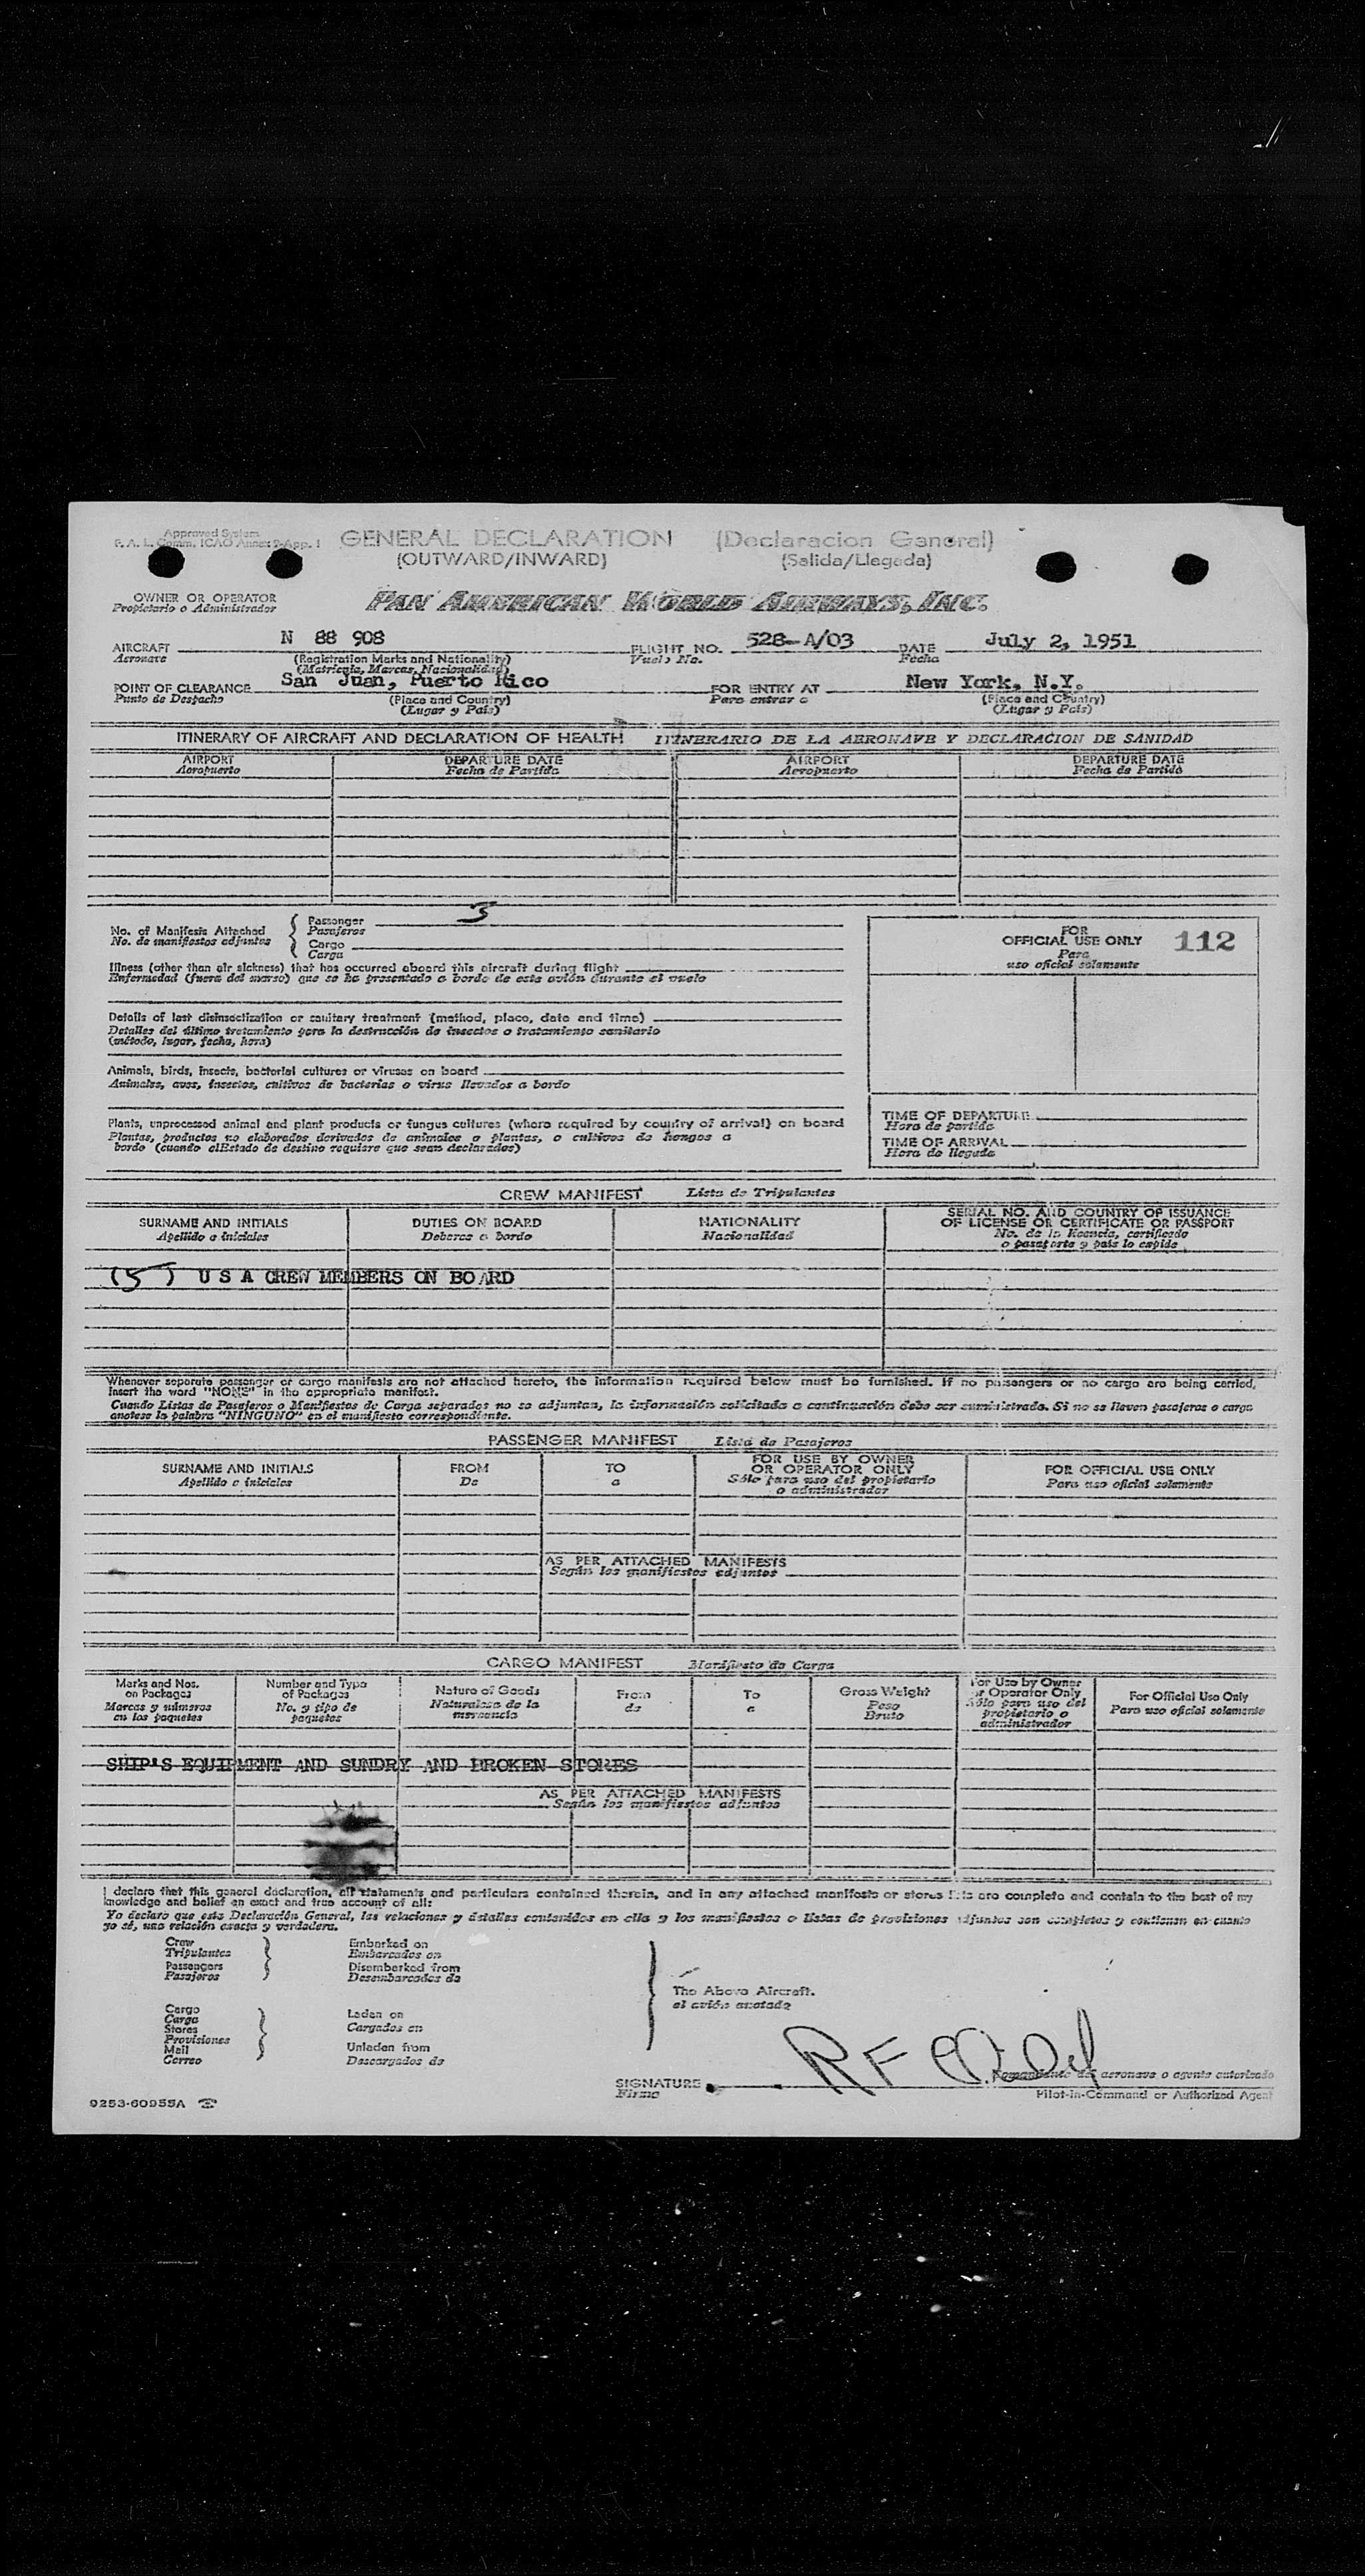 Approved System
F. A. L. Comm. ICAO Annex 9-App. 1
GENERAL DECLARATION (Declaracion General)
(OUTWARD/INWARD) (Salida/Llegada)
OWNER OR OPERATOR
Propietario o Administrador
PAN AMERICAN WORLD AIRWAYS, INC.
AIRCRAFT N 88 908 FLIGHT NO. 528-A/03 DATE July 2, 1951
Aeronave (Registration Marks and Nationality) Vuelo No. Fecha
(Matricula, Marcas, Nacionalidad)
POINT OF CLEARANCE San Juan, Puerto Rico FOR ENTRY AT New York, N.Y.
Punto de Despacho (Place and Country) Para entrar a (Place and Country)
(Lugar y País) (Lugar y País)
ITINERARY OF AIRCRAFT AND DECLARATION OF HEALTH ITINERARIO DE LA AERONAVE Y DECLARACION DE SANIDAD
AIRPORT DEPARTURE DATE AIRPORT DEPARTURE DATE
Aeropuerto Fecha de Partida Aeropuerto Fecha de Partida
No. of Manifests Attached Passenger 3
No. de manifiestos adjuntos Pasajeros
Cargo
Carga
FOR
OFFICIAL USE ONLY 112
Para
uso oficial solamente
Illness (other than air sickness) that has occurred aboard this aircraft during flight
Enfermedad (fuera del mareo) que se ha presentado a bordo de este avión durante el vuelo
Details of last disinsectization or sanitary treatment (method, place, date and time)
Detalles del último tratamiento para la destrucción de insectos o tratamiento sanitario
(método, lugar, fecha, hora)
Animals, birds, insects, bacterial cultures or viruses on board
Animales, aves, insectos, cultivos de bacterias o virus llevados a bordo
Plants, unprocessed animal and plant products or fungus cultures (where required by country of arrival) on board
Plantas, productos no elaborados derivados de animales o plantas, o cultivos de hongos a
bordo (cuando elEstado de destino requiere que sean declarados)
TIME OF DEPARTURE
Hora de partida
TIME OF ARRIVAL
Hora de llegada
CREW MANIFEST Lista de Tripulantes
SURNAME AND INITIALS DUTIES ON BOARD NATIONALITY SERIAL NO. AND COUNTRY OF ISSUANCE
OF LICENSE OR CERTIFICATE OR PASSPORT
Apellido e iniciales Deberes a bordo Nacionalidad No. de la licencia, certificado
o pasaporte y país lo expide
(5) U S A CREW MEMBERS ON BOARD
Whenever separate passenger or cargo manifests are not attached hereto, the information required below must be furnished. If no passengers or no cargo are being carried,
insert the word "NONE" in the appropriate manifest.
Cuando Listas de Pasajeros o Manifiestos de Carga separados no se adjuntan, la información solicitada a continuación debe ser suministrada. Si no se lleven pasajeros o carga
anotese la palabra "NINGUNO" en el manifiesto correspondiente.
PASSENGER MANIFEST Lista de Pasajeros
SURNAME AND INITIALS FROM TO FOR USE BY OWNER
OR OPERATOR ONLY FOR OFFICIAL USE ONLY
Apellido e iniciales De a Sólo para uso del propietario
o administrador Para uso oficial solamente
AS PER ATTACHED MANIFESTS
Según los manifiestos adjuntos
CARGO MANIFEST Manifiesto de Carga
Marks and Nos.
on Packages
Marcas y números
en los paquetes
Number and Type
of Packages
No. y tipo de
paquetes
Nature of Goods
Naturaleza de la
mercancía
From
de
To
a
Gross Weight
Peso
Bruto
For Use by Owner
or Operator Only
Sólo para uso del
propietario o
administrador
For Official Use Only
Para uso oficial solamente
SHIP'S EQUIPMENT AND SUNDRY AND BROKEN STORES
AS PER ATTACHED MANIFESTS
Según los manifiestos adjuntos
I declare that this general declaration, all statements and particulars contained therein, and in any attached manifests or stores lists are complete and contain to the best of my
knowledge and belief an exact and true account of all:
Yo declaro que esta Declaración General, las relaciones y detalles contenidos en ella y los manifiestos o listas de provisiones adjuntos son completos y contienen en cuanto
yo sé, una relación exacta y verdadera.
Crew
Tripulantes
Passengers
Pasajeros
Embarked on
Embarcados en
Disembarked from
Desembarcados de
Cargo
Carga
Stores
Provisiones
Mail
Correo
Laden on
Cargados en
Unladen from
Descargados de
The Above Aircraft.
el avión anotado
SIGNATURE R F
Firma
Comandante de aeronave o agente autorizado
Pilot-in-Command or Authorized Agent
9253-60955A